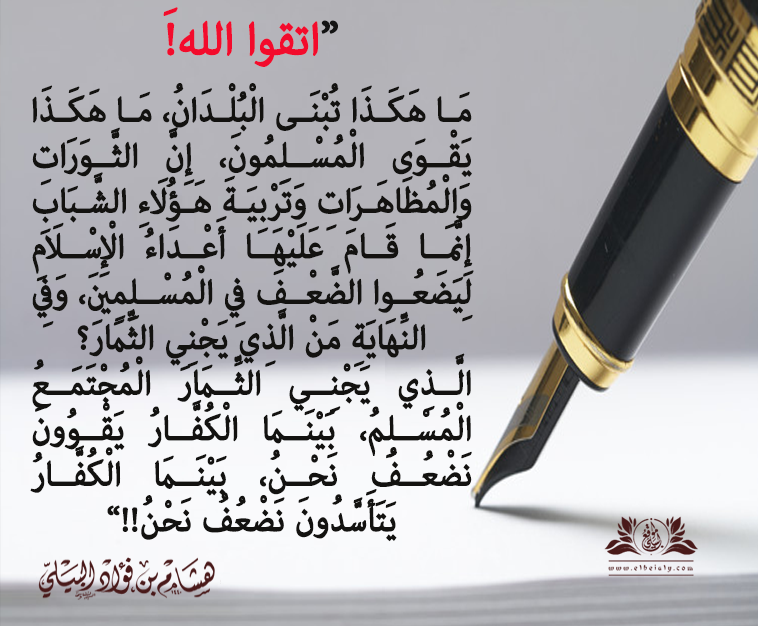 ”اتقوا اللهَ!
مَا هَكَذَا تُبْنَى الْبُلْدَانُ، مَا هَكَذَا
يَقْوَى الْمُسْلِمُونَ، إِنَّ الثَّوَرَاتِ
وَالْمُظَاهَرَاتِ وَتَرْبِيَةَ هَؤُلَاءِ الشَّبَابِ
إِنَّمَا قَامَ عَلَيْهَا أَعْدَاءُ الْإِسْلَامِ
لِيَضَعُوا الضَّعْفَ فِي الْمُسْلِمِينَ، وَفِي
النِّهَايَةِ مَنْ الَّذِي يَجْنِي الثِّمَارَ؟
الَّذِي يَجْنِي الثِّمَارَ الْمُجْتَمَعُ
الْمُسْلِمُ، بَيْنَمَا الْكُفَّارُ يَقْوُونَ
نَضْعُفُ نَحْنُ، بَيْنَمَا الْكُفَّارُ
يَتَأَسَّدُونَ نَضْعُفُ نَحْنُ!!“
هشام بن فؤاد البيلي
www.elbeialy.com